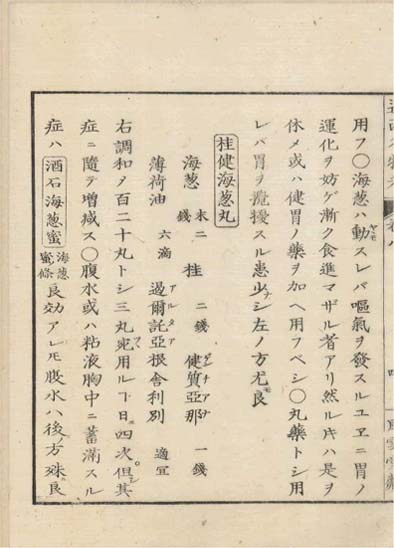 用フ○海葱ハ動スレバ嘔氣ヲ發スルユヱニ胃ノ
運化ヲ妨ゲ漸ク食進マザル者アリ然ルキハ是ヲ
休メ或ハ健胃ノ藥ヲ加ヘ用フベシ○丸藥トシ用
レバ胃ヲ攪擾スル患少ナシ左ノ方尤良
桂健海葱丸
海葱 末二錢 桂 二錢 健質亞那 ゲンチアナ 一錢
薄荷油 六滴 過爾託亞根舎利別 適宜
右調和ノ百二十丸トシ三丸宛用ルヿ日ニ四次但其
症ニ隨テ増減ス○腹水或ハ粘液胸中ニ蓄滿スル
症ハ酒石海葱蜜 海葱蜜條 良効アレ𪜈腹水ハ後ノ方殊良